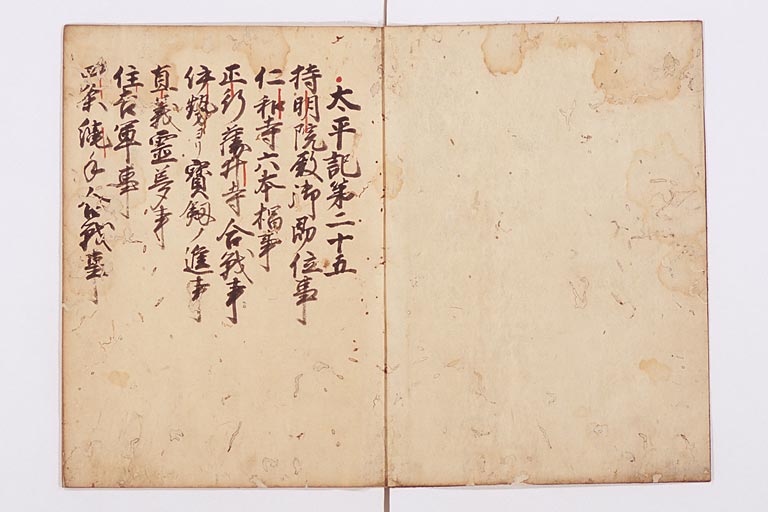 太平記第二十五
持明院殿御即位事
仁和寺六本榴事
正行藤井寺合戦事
伊勢ヨリ寳釼ノ進事
直義霊夢事
住吉軍事
四条縄手合戦事